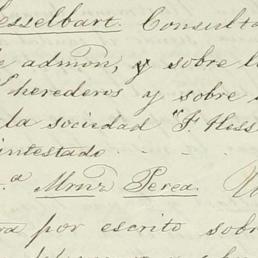 esselbart. Consulto
e admon, y sobre l
herederos y sobre
la sociedad "F. Hess
intestado.
.ª Mrnz Perea.
ra por escrito sobr